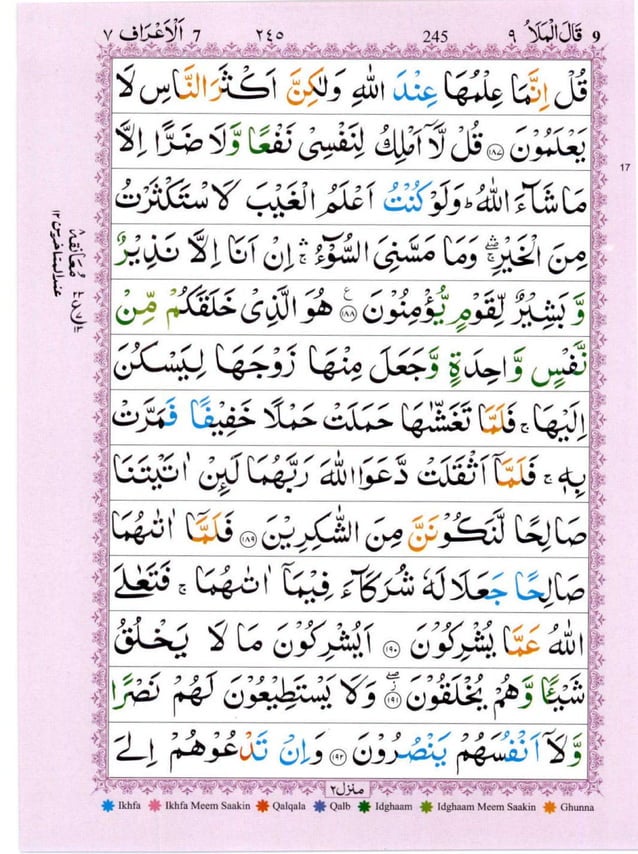 ٧ اَلْاَعْرَاف 7 ٢٤٥ 245 ٩ قَالَ الْمَلَاُ 9
قُلْ اِنَّمَا عِلْمُهَا عِنْدَ اللّٰهِ وَلٰكِنَّ اَكْثَرَ النَّاسِ لَا
يَعْلَمُوْنَ ﴿١٨٧﴾ قُلْ لَّاۤ اَمْلِكُ لِنَفْسِىْ نَفْعًا وَّلَا ضَرًّا اِلَّا
مَا شَآءَ اللّٰهُ ؕ وَلَوْ كُنْتُ اَعْلَمُ الْغَيْبَ لَاسْتَكْثَرْتُ
مِنَ الْخَيْرِ ۛۚ وَمَا مَسَّنِىَ السُّوْٓءُ ۛۚ اِنْ اَنَا اِلَّا نَذِيْرٌ
وَّبَشِيْرٌ لِّقَوْمٍ يُّؤْمِنُوْنَ ﴿١٨٨﴾ۧ هُوَ الَّذِىْ خَلَقَكُمْ مِّنْ
نَّفْسٍ وَّاحِدَةٍ وَّجَعَلَ مِنْهَا زَوْجَهَا لِيَسْكُنَ
اِلَيْهَا ۚ فَلَمَّا تَغَشّٰٮهَا حَمَلَتْ حَمْلًا خَفِيْفًا فَمَرَّتْ
بِهٖ ۚ فَلَمَّاۤ اَثْقَلَتْ دَّعَوَا اللّٰهَ رَبَّهُمَا لَئِنْ اٰتَيْتَنَا
صَالِحًا لَّنَكُوْنَنَّ مِنَ الشّٰكِرِيْنَ ﴿١٨٩﴾ فَلَمَّاۤ اٰتٰٮهُمَا
صَالِحًا جَعَلَا لَهٗ شُرَكَآءَ فِيْمَاۤ اٰتٰٮهُمَا ۚ فَتَعٰلَى
اللّٰهُ عَمَّا يُشْرِكُوْنَ ﴿١٩٠﴾ اَيُشْرِكُوْنَ مَا لَا يَخْلُقُ
شَيْئًا وَّهُمْ يُخْلَقُوْنَ ﴿١٩١﴾ۖ وَلَا يَسْتَطِيْعُوْنَ لَهُمْ نَصْرًا
وَّلَاۤ اَنْفُسَهُمْ يَنْصُرُوْنَ ﴿١٩٢﴾ وَاِنْ تَدْعُوْهُمْ اِلَى
منزل ٢
Ikhfa Ikhfa Meem Saakin Qalqala Qalb Idghaam Idghaam Meem Saakin Ghunna
17
معانقة ٨
عند المتاخرين ١٢